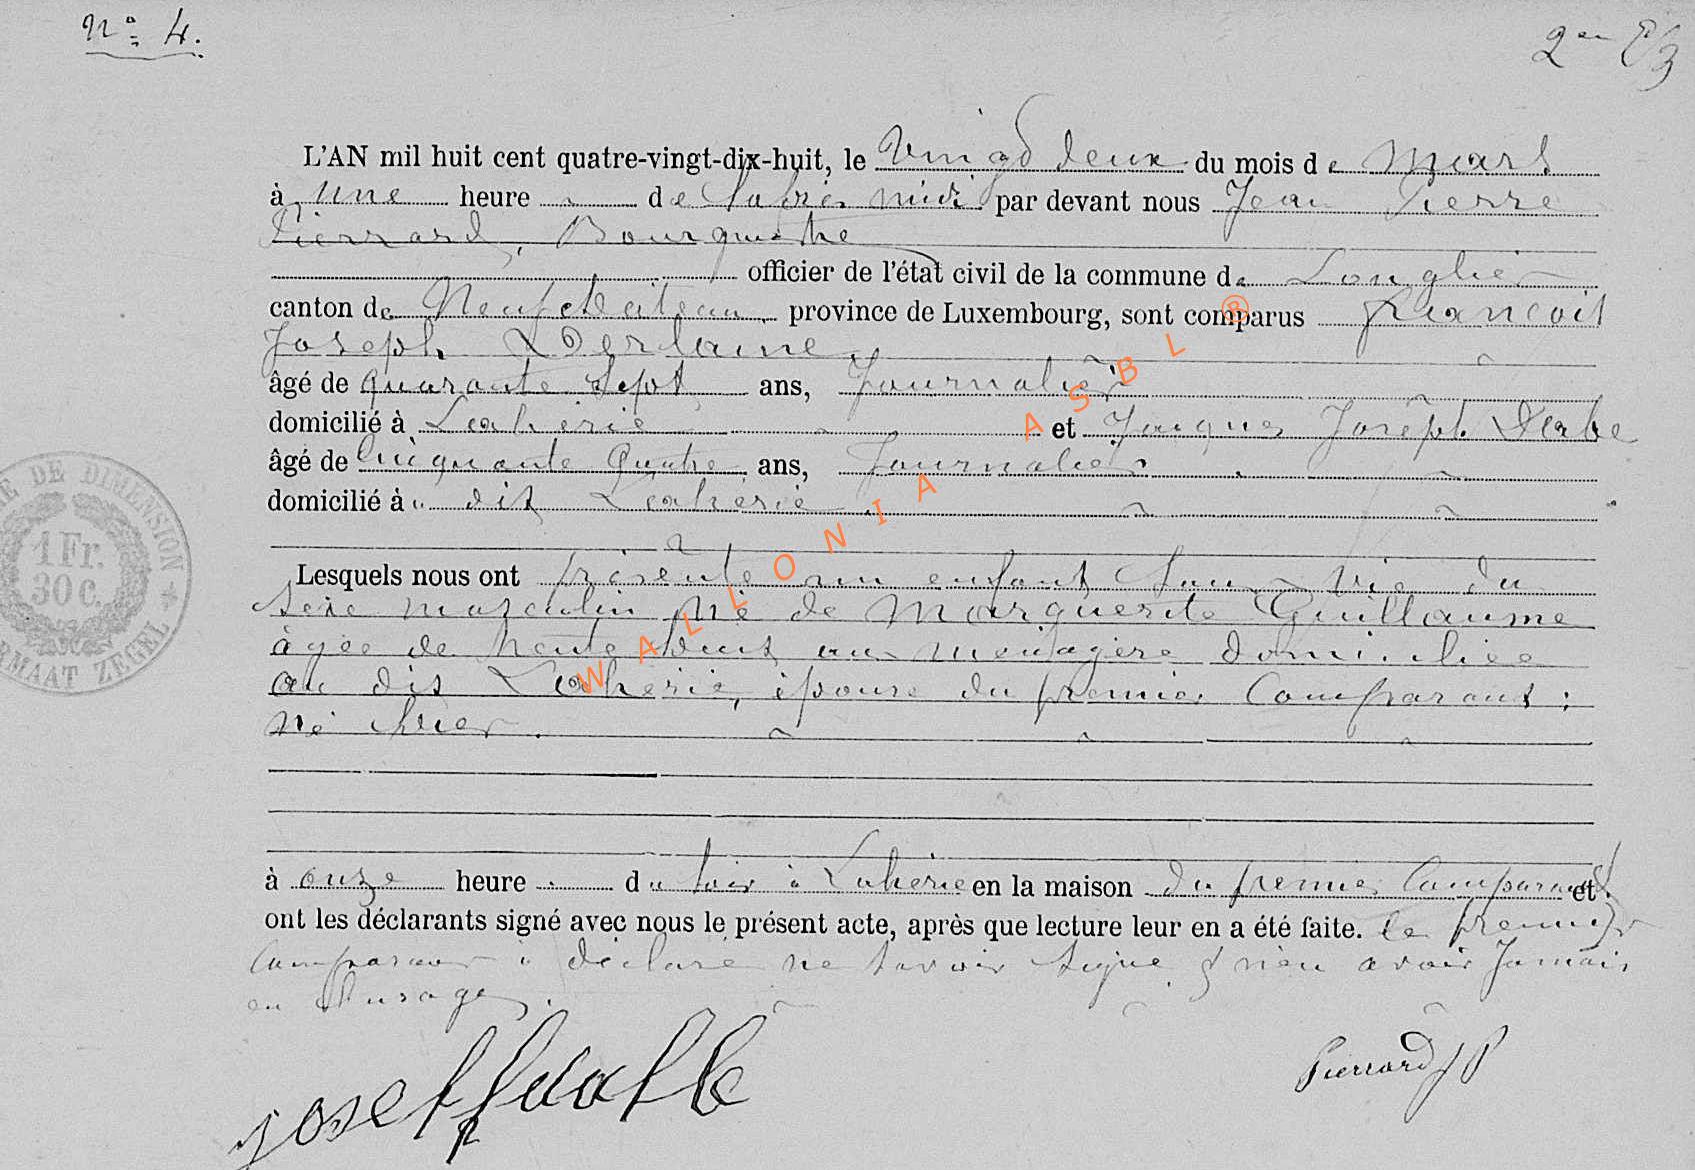 N° 4.
L'AN mil huit cent quatre-vingt-dix-huit, le Vingt deux du mois de Mars
à une heure de l'après midi par devant nous Jean Pierre
Pierrard, Bourgmestre
officier de l'état civil de la commune de Longlier
canton de Neufchâteau province de Luxembourg, sont comparus François
Joseph Derlaine
âgé de quarante sept ans, Journalier
domicilié à Laherie et Jacques Joseph
âgé de Cinquante Quatre ans, Journalier
domicilié à dit Laherie
Lesquels nous ont présenté un enfant sans vie du
sexe masculin né de Marguerite Guillaume
âgée de trente deux ans ménagère domiciliée
au dit Laherie, épouse du premier Comparant ;
né hier.
à onze heure du soir à Laherie en la maison du premier Comparant et
ont les déclarants signé avec nous le présent acte, après que lecture leur en a été faite. Le premier
Comparant a déclaré ne savoir signe & n'en avoir Jamais
eu l'usage.
Pierrard J P
DE DIMENSION
1 Fr.
30 c.
FORMAAT ZEGEL
WALLONIA ASBL ®